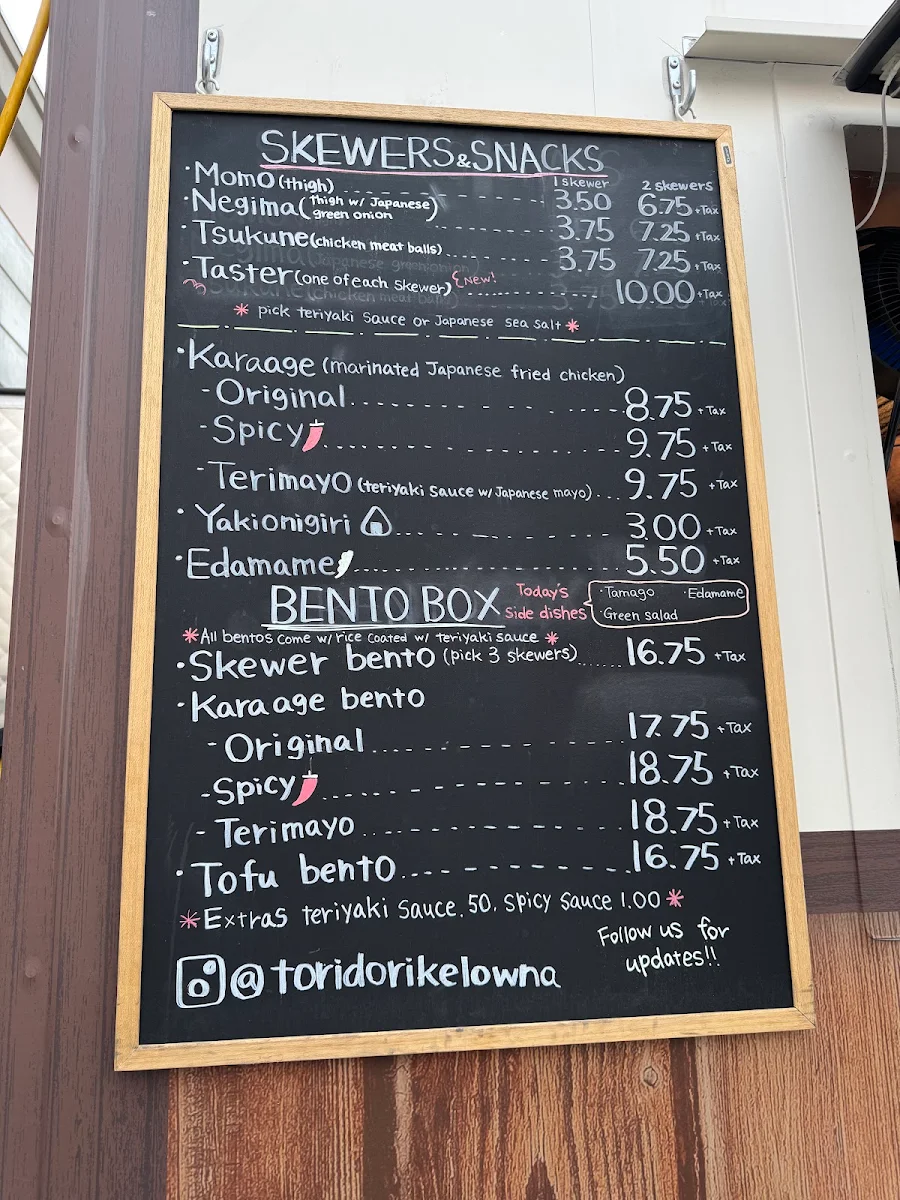 SKEWERS & SNACKS
1 skewer 2 skewers
· Momo (thigh) 3.50 6.75 +Tax
· Negima (thigh w/ Japanese green onion) 3.75 7.25 +Tax
· Tsukune (chicken meat balls) 3.75 7.25 +Tax
· Taster (one of each skewer) New! 10.00 +Tax
* pick teriyaki sauce or Japanese sea salt *
· Karaage (marinated Japanese fried chicken)
- Original 8.75 +Tax
- Spicy 9.75 +Tax
- Terimayo (teriyaki sauce w/ Japanese mayo) 9.75 +Tax
· Yakionigiri 3.00 +Tax
· Edamame 5.50 +Tax
BENTO BOX Today's side dishes · Tamago · Edamame Green salad
* All bentos come w/ rice coated w/ teriyaki sauce *
· Skewer bento (pick 3 skewers) 16.75 +Tax
· Karaage bento
- Original 17.75 +Tax
- Spicy 18.75 +Tax
- Terimayo 18.75 +Tax
· Tofu bento 16.75 +Tax
* Extras teriyaki sauce .50, spicy sauce 1.00 *
Follow us for updates!!
@toridorikelowna